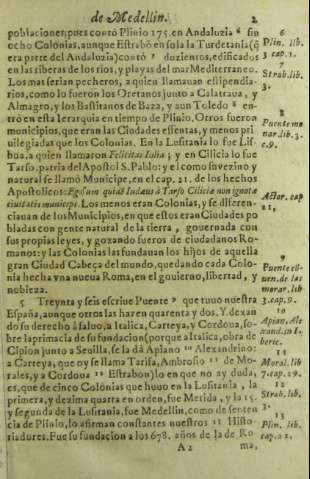 de Medellin. 2
poblaciones; pues contò Plinio 175. en Andaluzia ⁶ sin
ocho Colonias, aunque Estrabõ en sola la Turdetania (q̃
era parte del Andaluzia) contò ⁷ duzientos, edificados
en las riberas de los rios, y playas del mar Mediterraneo.
Los mas serian pecheros, a quien llamauan estipendia-
rios, como lo fueron los Oretanos junto a Calatraua, y
Almagro, y los Bastitanos de Baza, y aun Toledo ⁸ en-
trò en esta Ierarquia en tiempo de Plinio. Otros fueron
municipios, que eran las Ciudades essentas, y menos pri
uilegiadas que los Colonias. En la Lusitania lo fue Lis-
boa, a quien llamaron Felicitas Iulia; y en Cilicia lo fue
Tarso, patria del Apostol S. Pablo: y e como su vezino y
natural se llamò Municipe, en el cap. 21. de los hechos
Apostolicos: Ego sum quidẽ Iudæus à Tarso Ciliciæ non ignotæ
ciuitatis municeps. Los menos eran Colonias, y se diferen-
ciauan de los Municipios, en que estos eran Ciudades po
bladas con gente natural de la tierra, gouernada con
sus propias leyes, y gozando fueros de ciudadanos Ro-
manos: y las Colonias las fundauan los hijos de aquella
gran Ciudad Cabeça del mundo, quedando cada Colo-
nia hecha vna nueua Roma, en el gouierno, libertad, y
nobleza.
5 Treynta y seis escriue Puente ⁹ que tuuo nuestra
España, aunque otros las hazen quarenta y dos. Y dexan
do su derecho à saluo, a Italica, Carteya, y Cordoua, so-
bre la primacia de su fundacion (porque a Italica, obra de
Cipion junto a Seuilla, se la dà Apiano ¹⁰ Alexandrino:
a Carteya, que oy se llama Tarifa, Ambrosio ¹¹ de Mo-
rales, y a Cordoua ¹² Estrabon) lo en que no ay duda,
es, que de cinco Colonias que huuo en la Lusitania, la
primera, y dezima quarta en orden, fue Merida, y la 15.
y segunda de la Lusitania, fue Medellin, como de senten
cia de Plinio, lo afirman constantes nuestros ¹³ Histo-
riadores. Fue su fundacion a los 678. años de la de Ro
A 2 ma,
6
Plin. lib.
3. cap. 1.
7
Strab. lib.
3.
8
Puente mo
nar. lib. 3.
c. 9.
Actor. cap
21,
9
Puente cõ-
uen. de las
monar. lib
3. cap. 9.
10
Apian. Ale
xand. in I-
beric.
11
Moral. lib
7. cap. 29.
12
Strab. lib.
3.
13
Plin. lib.
cap. 22.